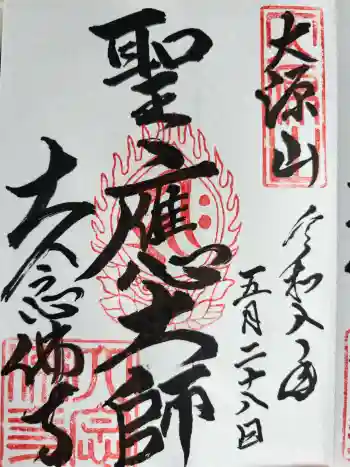 大源山
令和八年
五月二十八日
聖應大師
大念佛寺